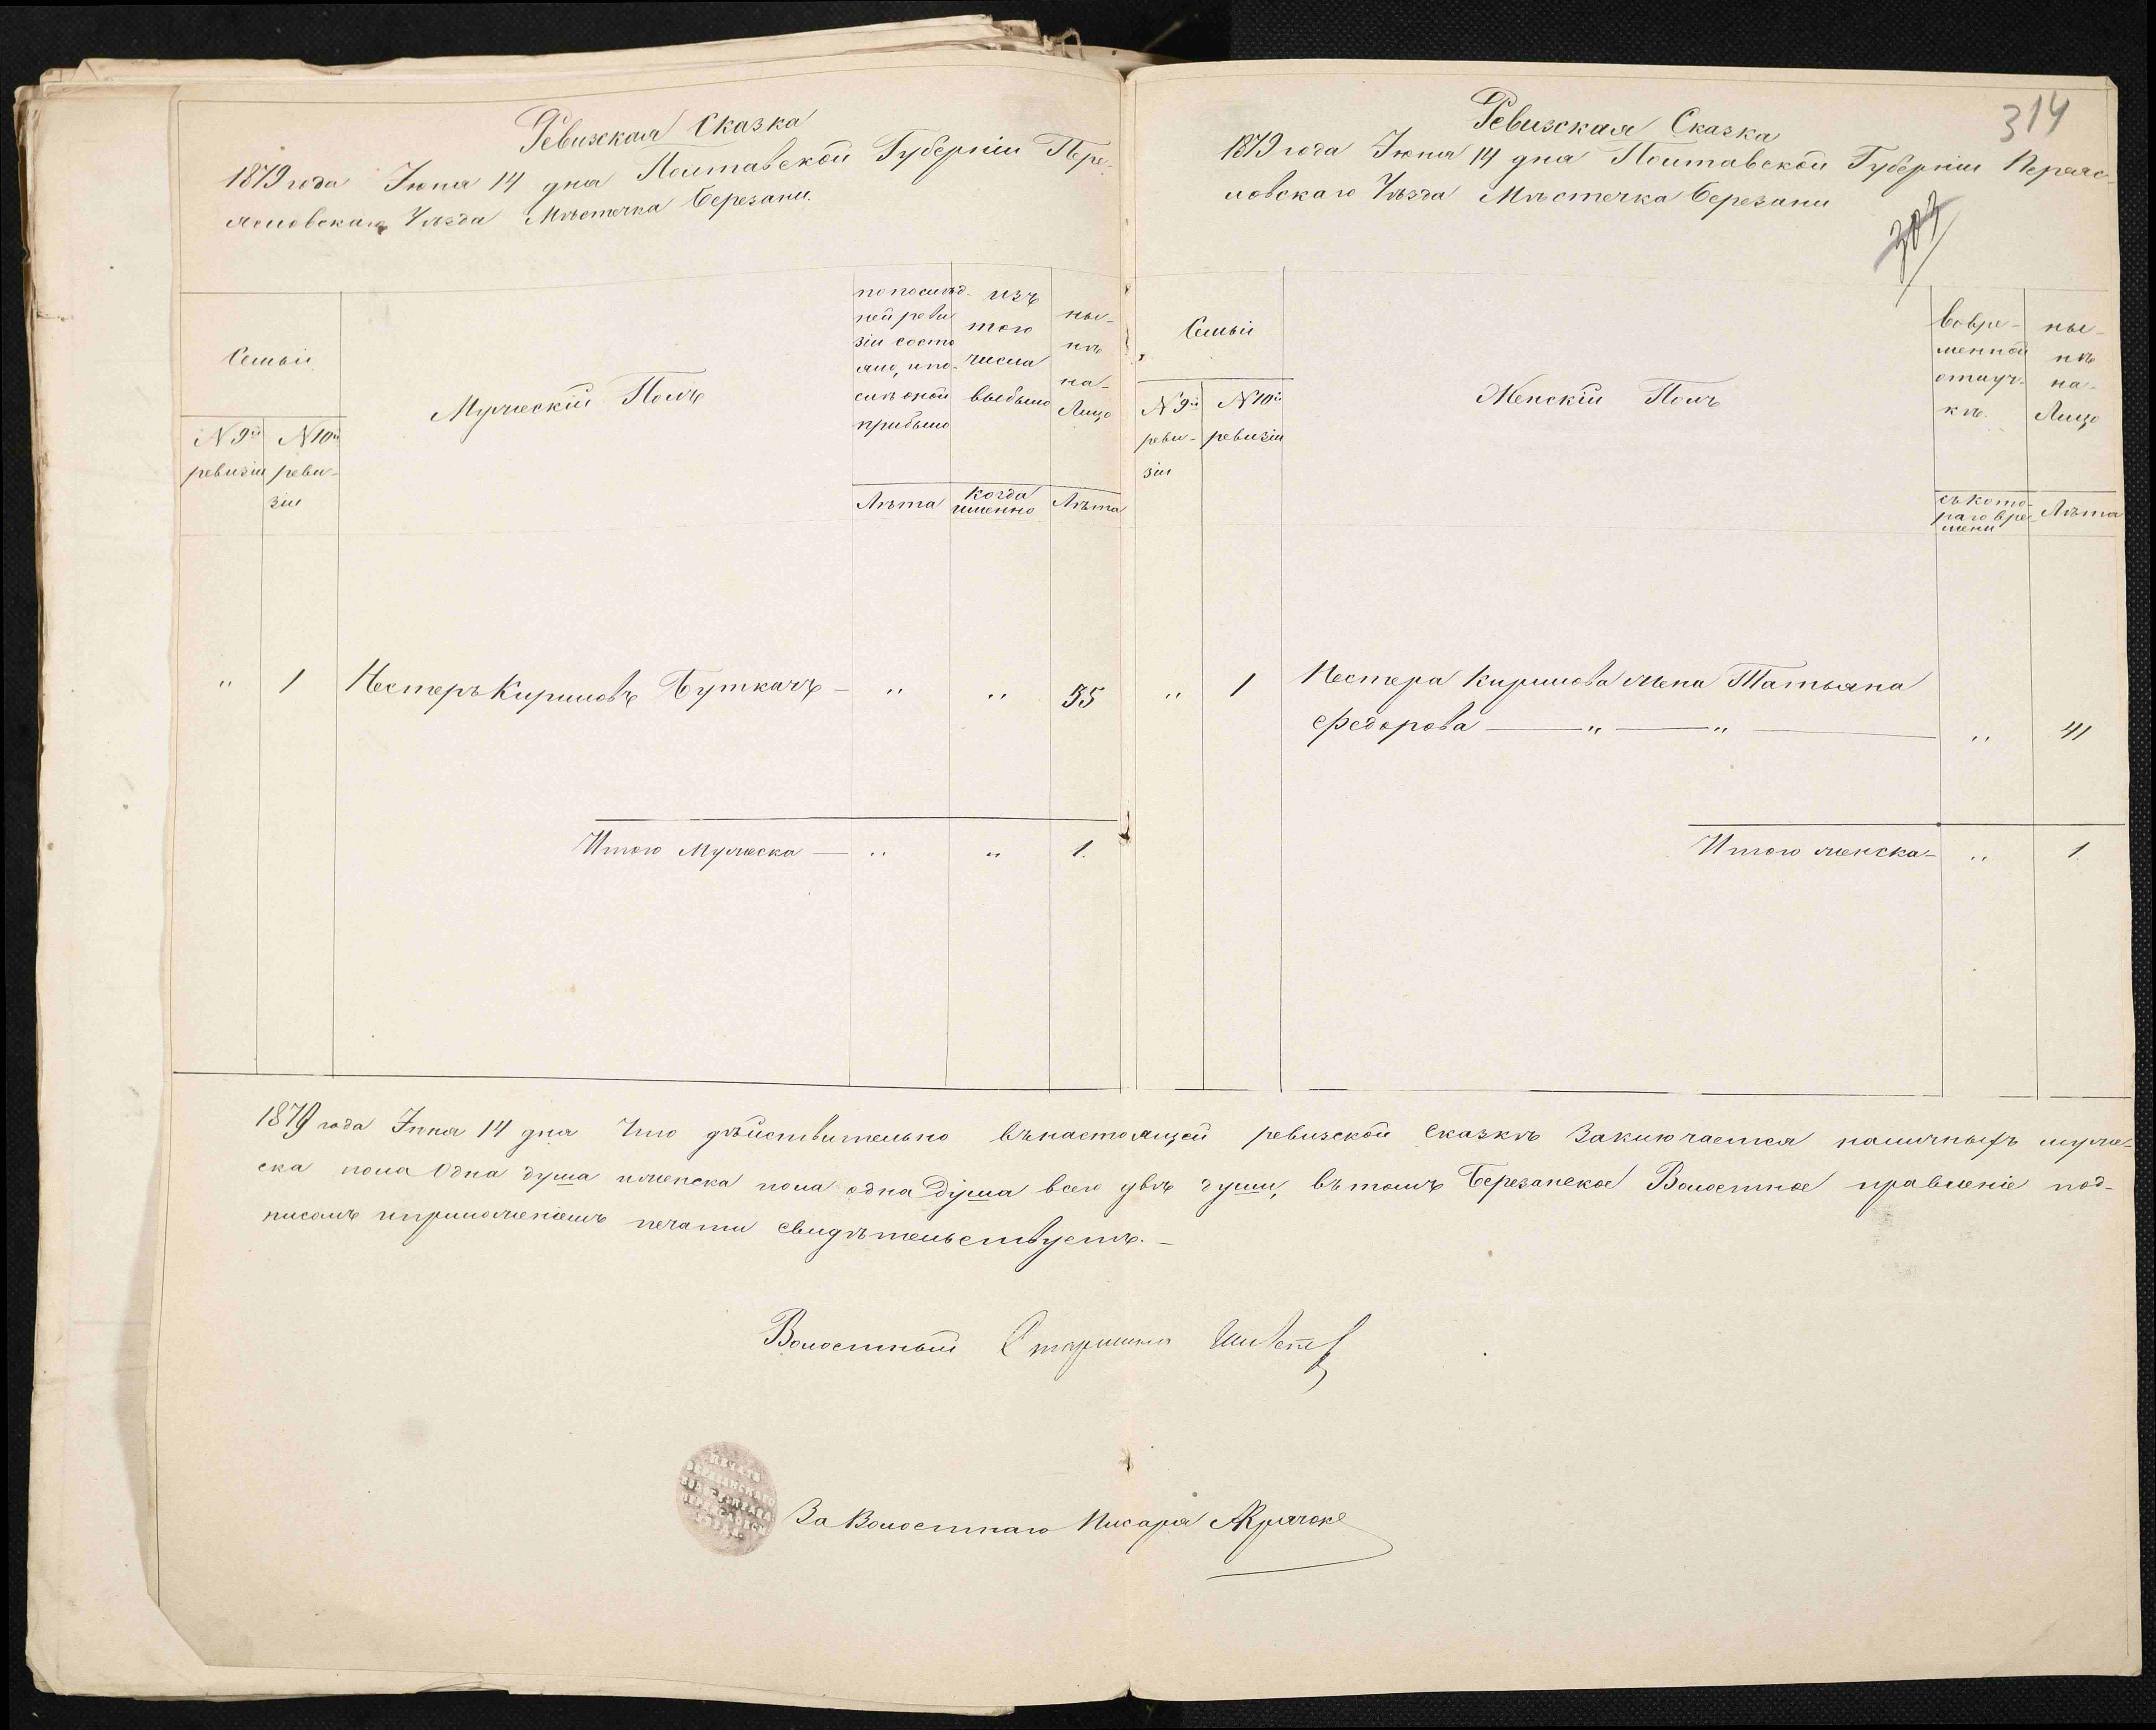 Ревизская Сказка
1879 года Іюня 14 дня Полтавской Губерніи Пере-
яславскаго Уѣзда Мѣстечка Березани.
Семьи
№ 9й ревизіи
№ 10й реви-
зіи
Мужескій Полъ
по послѣд-
ней реви
зіи состо
яло, и по-
слѣ оной
прибыло
Лѣта
изъ
того
числа
выбыло
когда
именно
ны-
нѣ
на-
Лицо
Лѣта
" 1 Нестеръ Кириловъ Буткачъ — " " 55
Итого Мужеска — " " 1.
314
Ревизская Сказка
1879 года Іюня 14 дня Полтавской Губерніи Переяс-
ловскаго Уѣзда Мѣстечка Березани
303
Семьи
№ 9й
реви-
зіи
№ 10й
ревизіи
Женскій Полъ
во вре-
менной
отлуч-
кѣ
съ кото-
раго вре-
мени
ны-
нѣ
на-
Лицо
Лѣта
" 1 Нестера Кирилова жена Татьяна
Федорова — " — " — " 41
Итого женска — " 1.
1879 года Іюня 14 дня Что дѣйствительно въ настоящей ревизской сказкѣ Заключается наличныхъ муже-
ска пола Одна душа и женска пола одна Душа всего двѣ души, въ томъ Березанское Волостное правленіе под-
писомъ и приложеніемъ печати свидѣтельствуетъ. —
Волостный Старшина
ПЕЧАТЬ
БЕРЕЗАНСКАГО
За Волостнаго Писаря